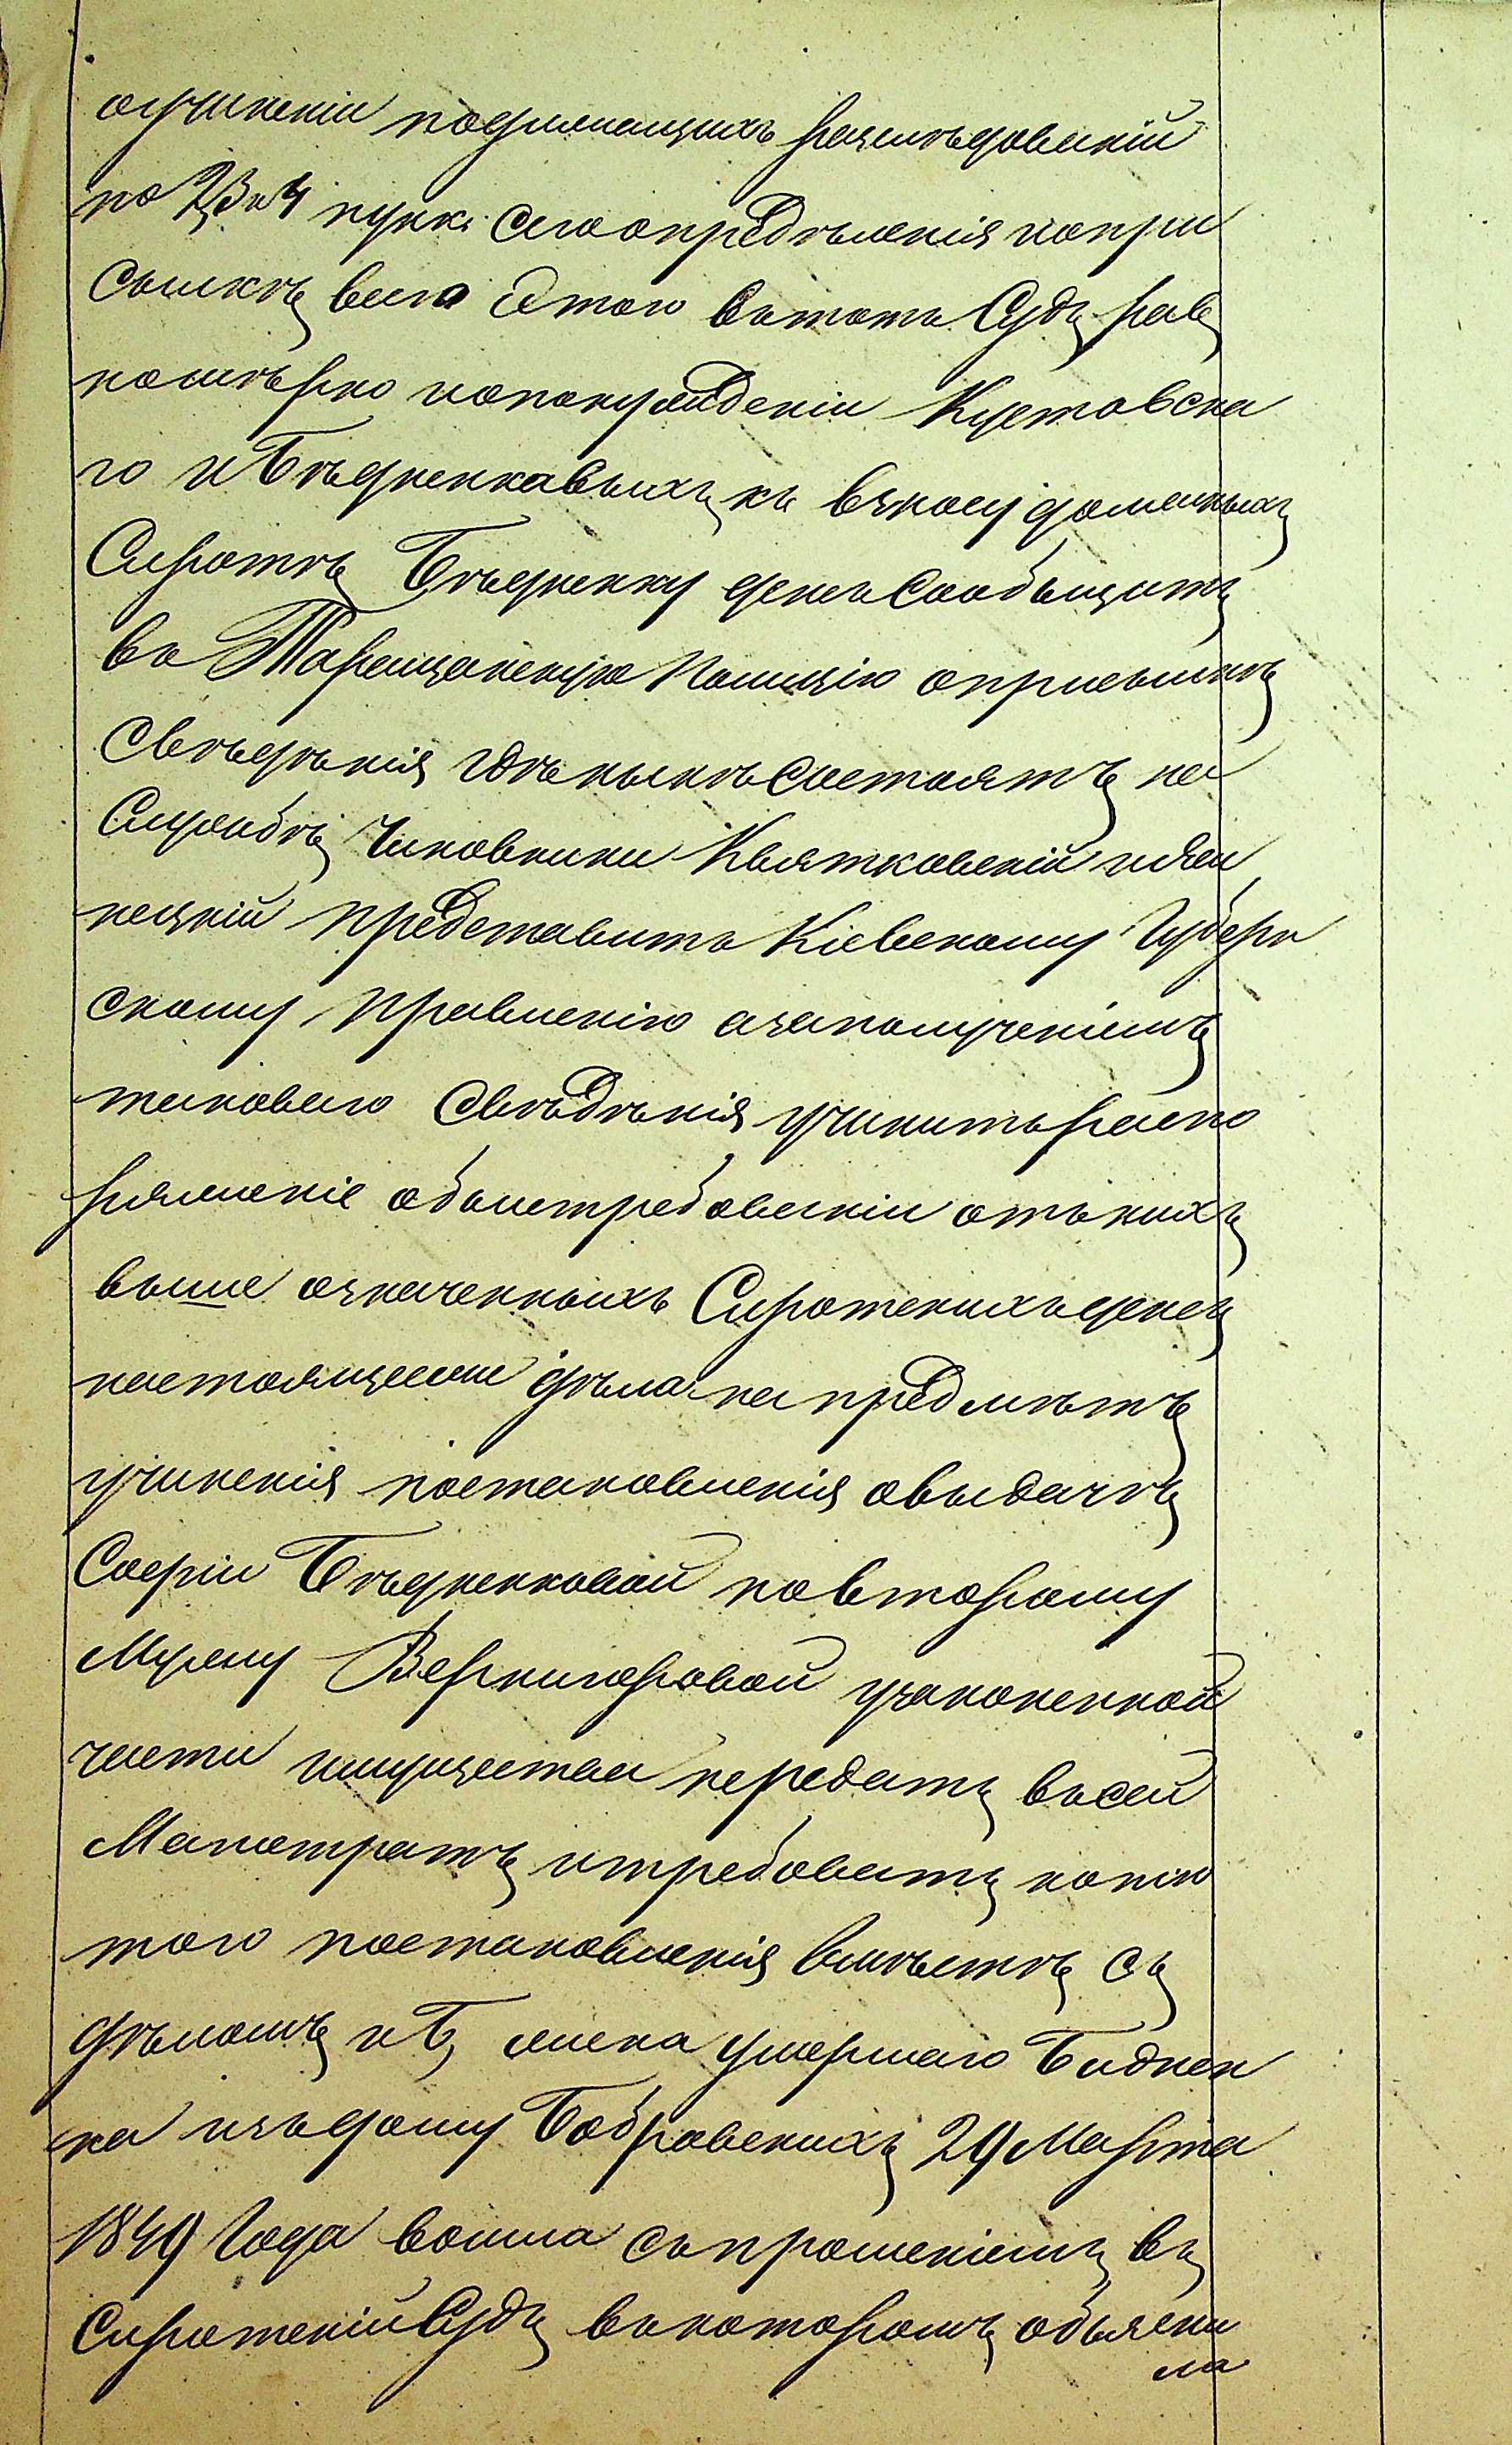 оучиненіи подлежащихъ разслѣдованій
по 2, 3 и 4 пунк. сего опредѣленія и о при
сылкѣ всего этого въ тотъ Судъ рав
номѣрно и о понужденіи Кустовска
го и Бѣдненковыхъ къ взносу должныхъ
Сиротѣ Бѣдненку денегъ сообщить
въ Таращанскую Полицію о присылкѣ
свѣдѣнія гдѣ нынѣ состоятъ на
Службѣ Чиновники Квятковскій и Яни
нецкій представить Кіевскому Губерн
скому Правленію а за полученіемъ
таковаго свѣдѣнія учинить распо
ряженіе объ истребованіи отъ нихъ
выше означенныхъ Сиротскихъ денегъ
настоящее же дѣло на предмѣтъ
учиненія постановленія о выдачѣ
Софіи Бѣдненковой по второму
Мужу Вернигоровой узаконенной
части имущества передать въ сей
Магистратъ и требовать копію
того постановленія вмѣстѣ съ
дѣломъ и Б, жена умершаго Биднен
ка изъ дому Бобровскихъ 29 Марта
1849 Года вошла съ прошеніемъ въ
Сиротскій Судъ въ которомъ объясни
ла